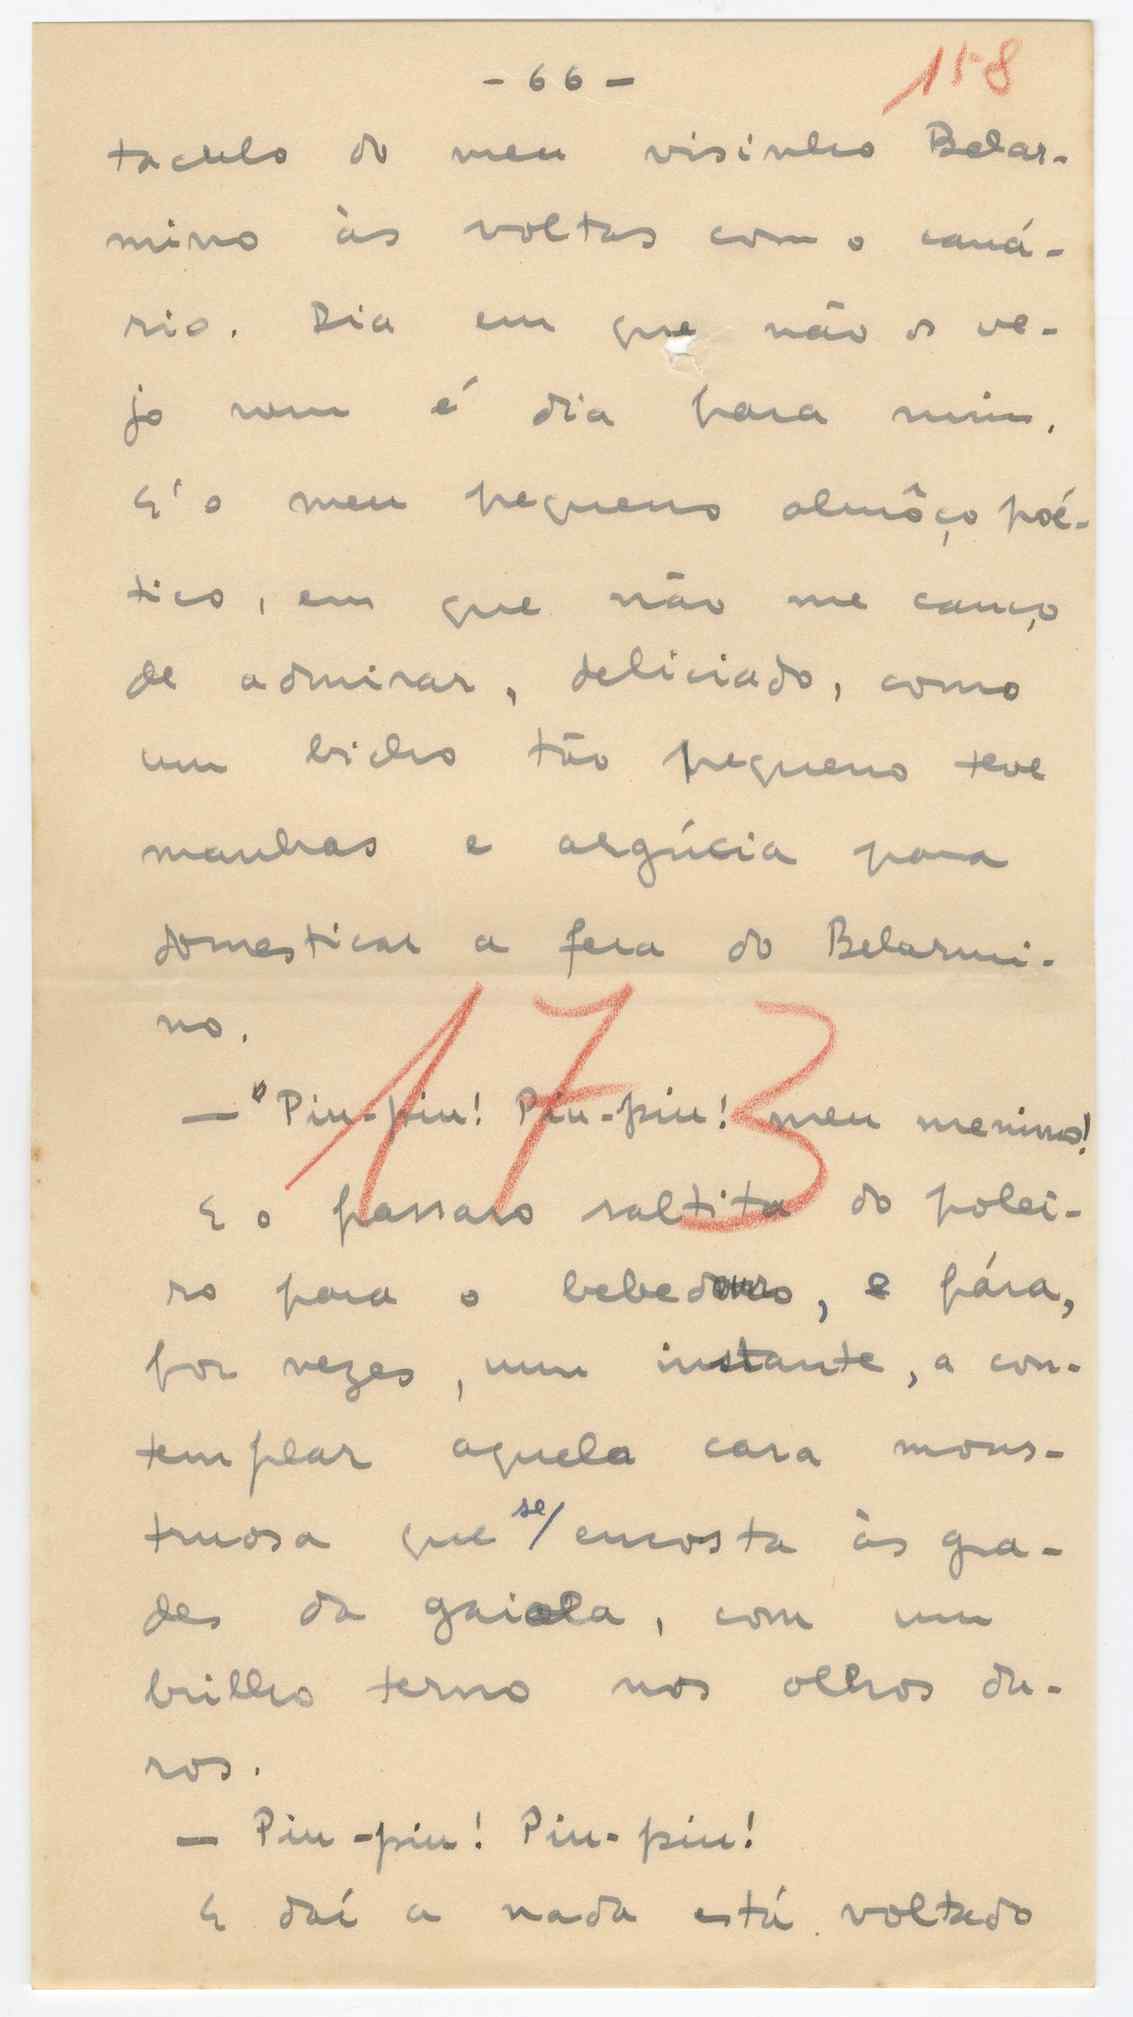 - 66 -
158
taculo do meu visinho Belar-
mino às voltas com o caná-
rio. Dia em que não os ve-
jo nem é dia para mim.
E' o meu pequeno almôço poé-
tico, em que não me canço
de admirar, deliciado, como
um bicho tão pequeno teve
manhas e argúcia para
domesticar a fera do Belarmi-
no.
173
— Piu-piu! Piu-piu! meu menino!
E o passaro saltita do polei-
ro para o bebedouro, e pára,
por vezes, um instante, a con-
templar aquela cara mons-
truosa que se/ encosta às gra-
des da gaiola, com um
brilho terno nos olhos du-
ros.
— Piu-piu! Piu-piu!
E daí a nada está voltado